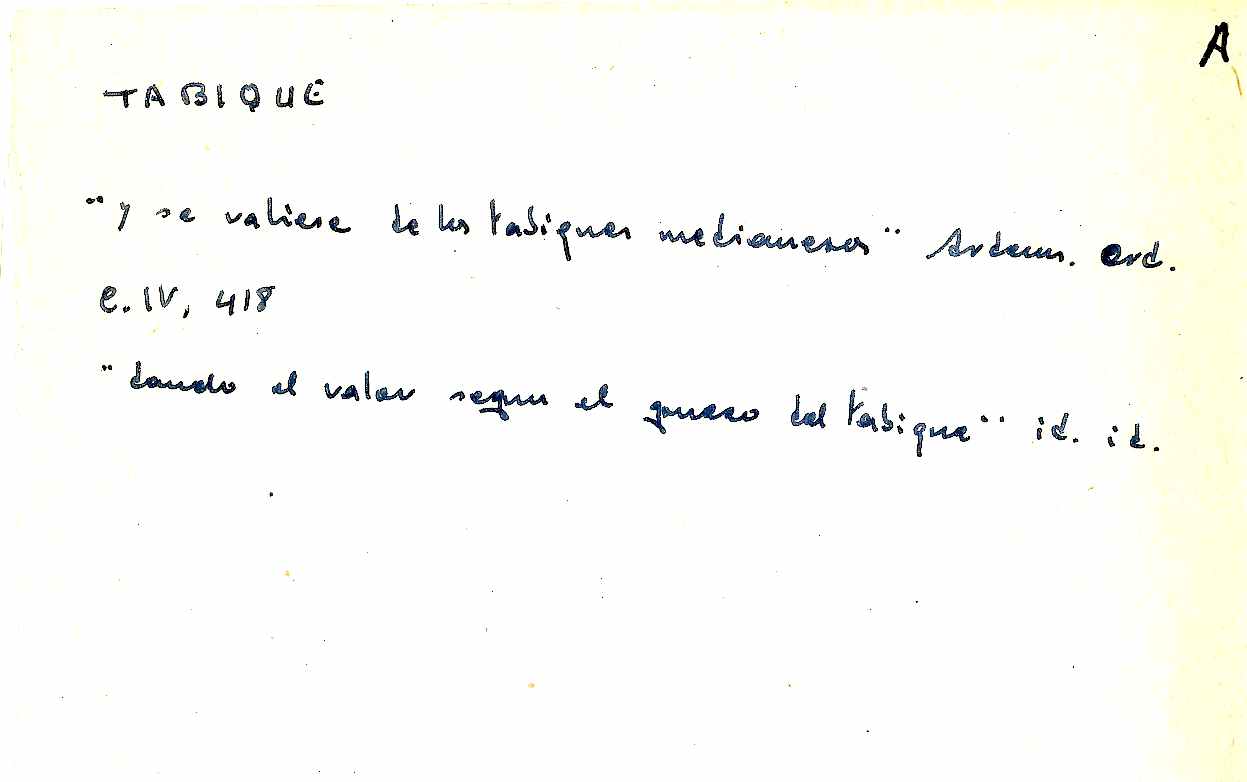 A
TABIQUE
"y se valiese de los tabiques medianeros" Ardem. Ord.
C. IV, 418
"dando el valor segun el grueso del tabique" id. id.